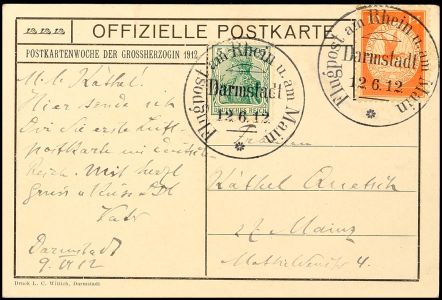 OFFIZIELLE POSTKARTE
POSTKARTENWOCHE DER GROSSHERZOGIN 1912
Flugpost am Rhein u. am Main
Darmstadt
12.6.12
Flugpost am Rhein u. am Main
Darmstadt
12.6.12
DEUTSCHES REICH
M. l. Käthel!
Hier sende ich
Dir die erste Luft-
postkarte im Deutsch.
Reich. Mit herzl.
Gruss u. Kuss Dl
Vater
Darmstadt
9. VI 12
Fräulein
Käthel
Mainz
4.
Druck L. C. Wittich, Darmstadt